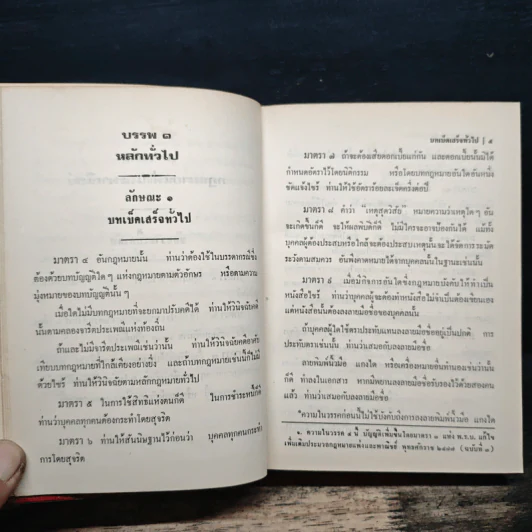 บรรพ ๑
หลักทั่วไป
ลักษณะ ๑
บทเบ็ดเสร็จทั่วไป
มาตรา ๔ อันกฎหมายนั้น ท่านว่าต้องใช้ในบรรดากรณีซึ่ง
ต้องด้วยบทบัญญัติใด ๆ แห่งกฎหมายตามตัวอักษร หรือตามความ
มุ่งหมายของบทบัญญัตินั้น ๆ
เมื่อใดไม่มีบทกฎหมายที่จะยกมาปรับคดีได้ ท่านให้วินิจฉัยคดี
นั้นตามคลองจารีตประเพณีแห่งท้องถิ่น
ถ้าและไม่มีจารีตประเพณีเช่นว่านั้น ท่านให้วินิจฉัยคดีอาศัย
เทียบบทกฎหมายที่ใกล้เคียงอย่างยิ่ง และถ้าบทกฎหมายเช่นนี้ก็ไม่มี
ด้วยไซร้ ท่านให้วินิจฉัยตามหลักกฎหมายทั่วไป
มาตรา ๕ ในการใช้สิทธิแห่งตนก็ดี ในการชำระหนี้ก็ดี
ท่านว่าบุคคลทุกคนต้องกระทำโดยสุจริต
มาตรา ๖ ท่านให้สันนิษฐานไว้ก่อนว่า บุคคลทุกคนกระทำ
การโดยสุจริต
บทเบ็ดเสร็จทั่วไป | ๕
มาตรา ๗ ถ้าจะต้องเสียดอกเบี้ยแก่กัน และดอกเบี้ยนั้นมิได้
กำหนดอัตราไว้โดยนิติกรรม หรือโดยบทกฎหมายอันใดอันหนึ่ง
ชัดแจ้งไซร้ ท่านให้ใช้อัตราร้อยละเจ็ดครึ่งต่อปี
มาตรา ๘ คำว่า "เหตุสุดวิสัย" หมายความว่าเหตุใด ๆ อัน
จะเกิดขึ้นก็ดี จะให้ผลพิบัติก็ดี ไม่มีใครจะอาจป้องกันได้ แม้ทั้ง
บุคคลผู้ต้องประสบหรือใกล้จะต้องประสบเหตุนั้นจะได้จัดการระมัด
ระวังตามสมควร อันพึงคาดหมายได้จากบุคคลนั้นในฐานะเช่นนั้น
มาตรา ๙ เมื่อมีกิจการอันใดซึ่งกฎหมายบังคับให้ทำเป็น
หนังสือไซร้ ท่านว่าบุคคลผู้จะต้องทำหนังสือไม่จำเป็นต้องเขียนเอง
แต่หนังสือนั้นต้องลงลายมือชื่อของบุคคลนั้น
ถ้าบุคคลผู้ใดใช้ตราประทับแทนลงลายมือชื่ออยู่เป็นปกติ การ
ประทับตราเช่นนั้น ท่านว่าเสมอกับลงลายมือชื่อ
ลายพิมพ์นิ้วมือ แกงได หรือเครื่องหมายอื่นทำนองเช่นว่านั้น
ก็ดี ทำลงในเอกสาร หากมีพยานลงลายมือชื่อรับรองไว้ด้วยสองคน
แล้ว ท่านว่าเสมอกับลงลายมือชื่อ
"ความในวรรคก่อนนี้ไม่ใช้บังคับถึงการลงลายพิมพ์นิ้วมือ แกงได
๑. ความในวรรค ๔ นี้ บัญญัติเพิ่มขึ้นโดยมาตรา ๓ แห่ง พ.ร.บ. แก้ไข
เพิ่มเติมประมวลกฎหมายแพ่งและพาณิชย์ พุทธศักราช ๒๔๙๑ (ฉบับที่ ๓)